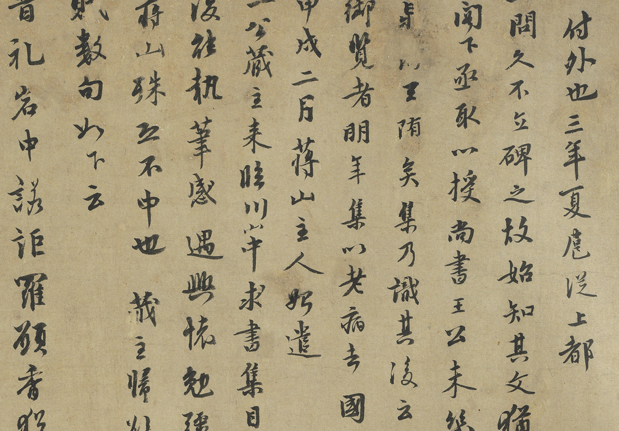 付外也三年夏扈從上都
問久不立碑之故始知其文猶
閣下亟取以授尚書王公未幾
王隋矣集乃識其後云
御覽者明年集以老病去國
甲戌二月蔣山主人始遣
公藏主來臨川山中求書集目
後能執筆感遇興懷勉彊
蔣山殊不中也藏主歸
貳數句如下云
首礼岩中諾詎羅願香猶